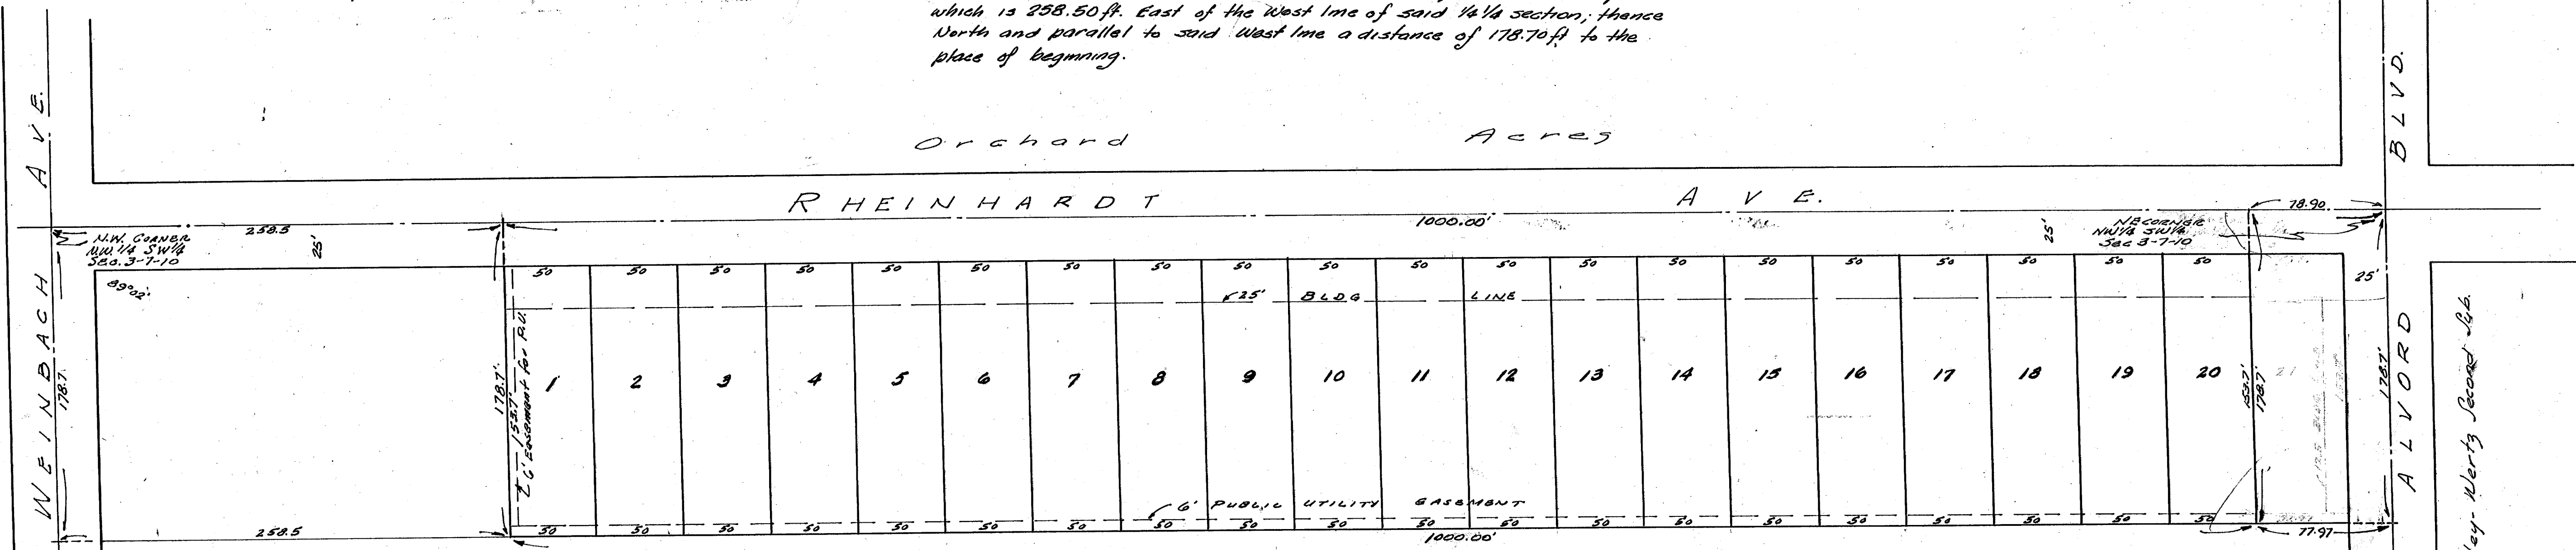 which is 258.50 ft. East of the West line of said 1/4 1/4 section; thence
North and parallel to said West line a distance of 178.70 ft to the
place of beginning.
Orchard Acres
RHEINHARDT AVE.
WEINBACH AVE.
ALVORD BLVD.
N.W. CORNER
NW 1/4 SW 1/4
Sec. 3-7-10
258.5
25'
1000.00'
25'
NE CORNER
NW 1/4 SW 1/4
Sec 3-7-10
78.90
89°02'
50 50 50 50 50 50 50 50 50 50 50 50 50 50 50 50 50 50 50 50
25'
25' BLDG LINE
178.7'
178.7'
153.7'
6' Easement for P.U.
1 2 3 4 5 6 7 8 9 10 11 12 13 14 15 16 17 18 19 20 21
153.7'
178.7'
178.7'
6' PUBLIC UTILITY EASEMENT
258.5
50 50 50 50 50 50 50 50 50 50 50 50 50 50 50 50 50 50 50 50
1000.00'
77.97
ey-Wertz Second Sub.